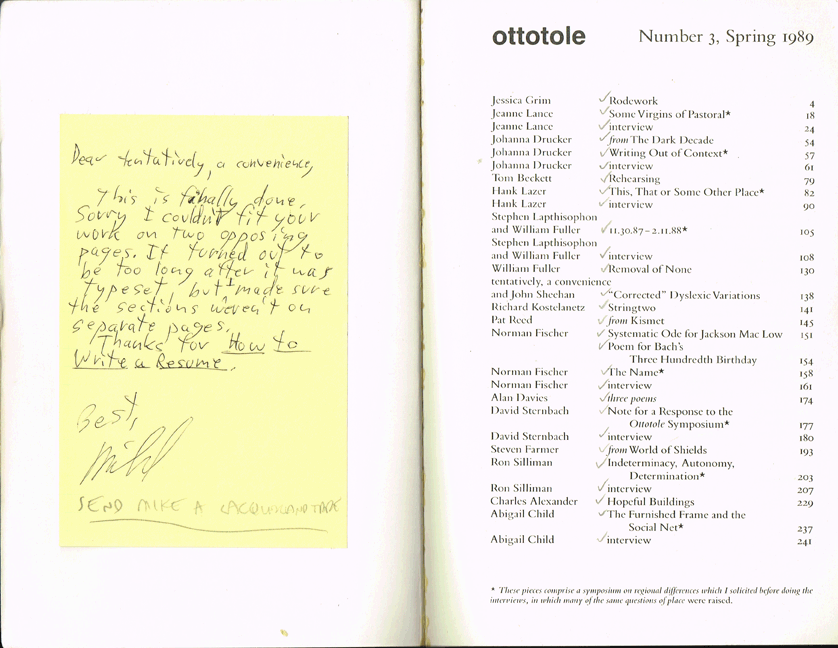 Dear tentatively, a convenience,
This is finally done.
Sorry I couldn't fit your
work on two opposing
pages. It turned out to
be too long after it was
typeset, but I made sure
the sections weren't on
separate pages.
Thanks for How to
Write a Resume.
Best,
SEND MIKE A
ottotole Number 3, Spring 1989
Jessica Grim ✓Rodework 4
Jeanne Lance ✓Some Virgins of Pastoral* 18
Jeanne Lance ✓interview 24
Johanna Drucker ✓from The Dark Decade 54
Johanna Drucker ✓Writing Out of Context* 57
Johanna Drucker ✓interview 61
Tom Beckett ✓Rehearsing 79
Hank Lazer ✓This, That or Some Other Place* 82
Hank Lazer ✓interview 90
Stephen Lapthisophon
and William Fuller ✓11.30.87–2.11.88* 105
Stephen Lapthisophon
and William Fuller ✓interview 108
William Fuller ✓Removal of None 130
tentatively, a convenience
and John Sheehan ✓"Corrected" Dyslexic Variations 138
Richard Kostelanetz ✓Stringtwo 141
Pat Reed ✓from Kismet 145
Norman Fischer ✓Systematic Ode for Jackson Mac Low 151
✓Poem for Bach's
Three Hundredth Birthday 154
Norman Fischer ✓The Name* 158
Norman Fischer ✓interview 161
Alan Davies ✓three poems 174
David Sternbach ✓Note for a Response to the
Ottotole Symposium* 177
David Sternbach ✓interview 180
Steven Farmer ✓from World of Shields 193
Ron Silliman ✓Indeterminacy, Autonomy,
Determination* 203
Ron Silliman ✓interview 207
Charles Alexander ✓Hopeful Buildings 229
Abigail Child ✓The Furnished Frame and the
Social Net* 237
Abigail Child ✓interview 241
* These pieces comprise a symposium on regional differences which I solicited before doing the
interviews, in which many of the same questions of place were raised.